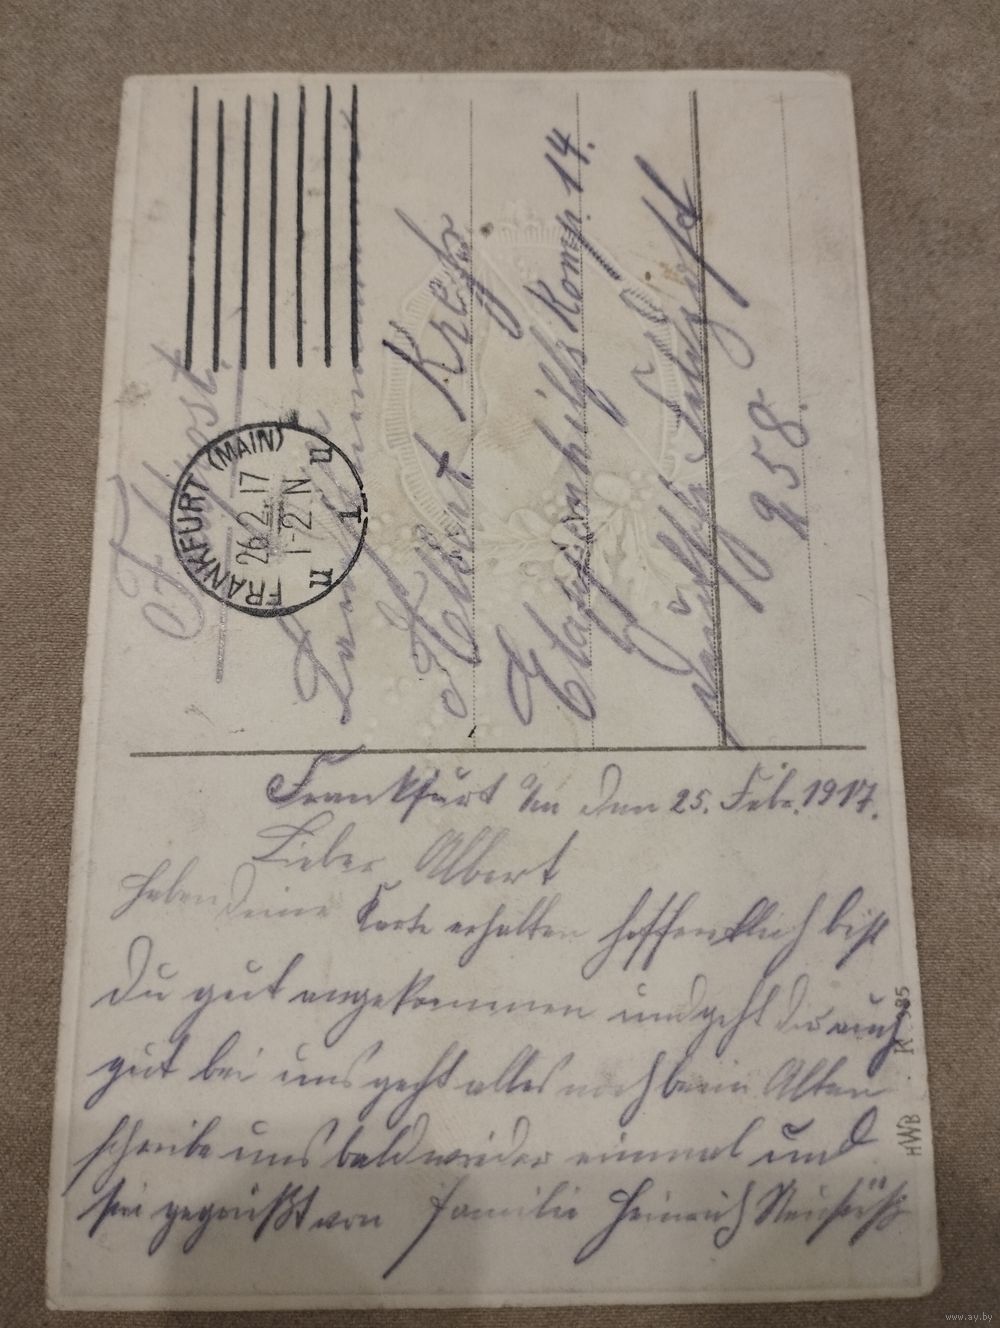 Feldpost.
FRANKFURT (MAIN)
26.2.17
1-2 N
u 1 u
Landsturmmann
Albert Krebs
Etappenhilfskomp. 14.
Deutsche Feldpost
958.
Frankfurt a/m den 25. Febr. 1917.
Lieber Albert
Haben deine Karte erhalten hoffentlich bist
Du gut angekommen und geht dir auch
gut bei uns geht alles noch beim Alten
schreibe uns bald wieder einmal und
sei gegrüßt von Familie Heinrich
HWB. K. 385
www.ay.by